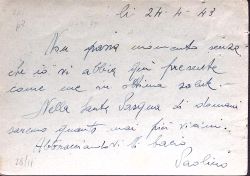 li 24-4-43
Non passa momento senza
che io vi abbia qui presente
come me in ottima salute.
Nella Santa Pasqua di domani
saremo quanto mai più vicini.
Abbracciandovi bacio
Paolino
28/4